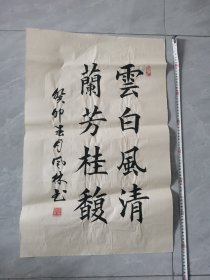 雲白風清
蘭芳桂馥
癸卯吉月風林書